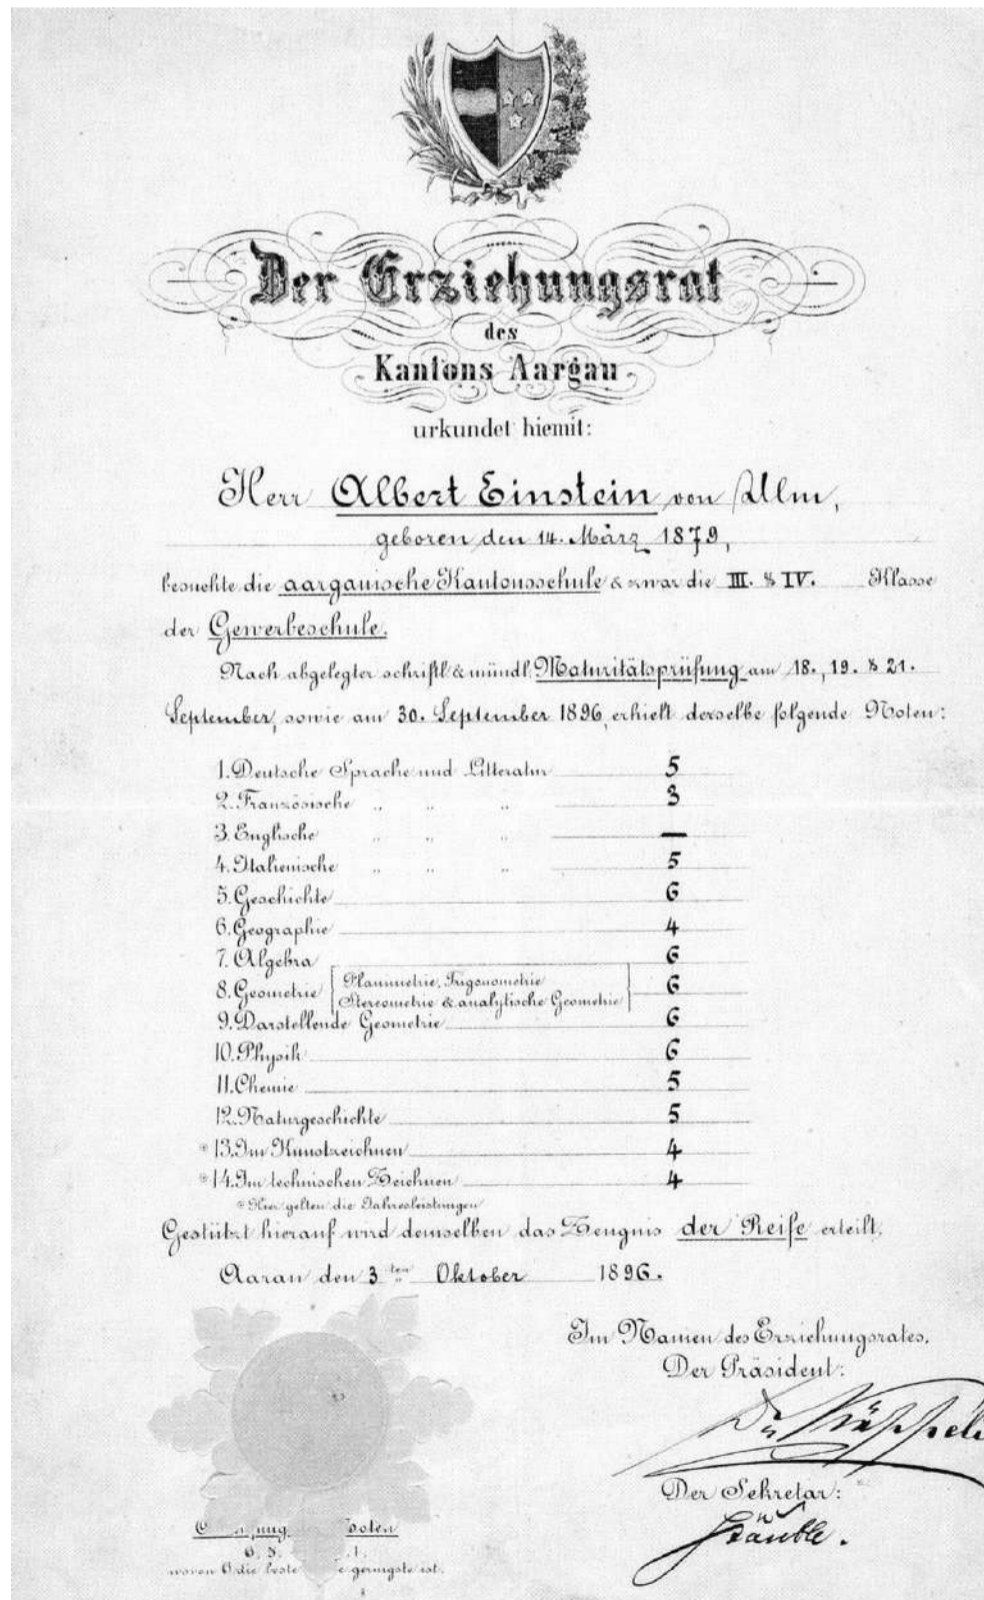 Der Erziehungsrat
des
Kantons Aargau
urkundet hiemit:
Herr Albert Einstein von Ulm,
geboren den 14. März 1879,
besuchte die aargauische Kantonsschule & zwar die III. & IV. Klasse
der Gewerbeschule.
Nach abgelegter schriftl. & mündl. Maturitätsprüfung am 18., 19. & 21.
September, sowie am 30. September 1896, erhielt derselbe folgende Noten:
1. Deutsche Sprache und Litteratur 5
2. Französische „ „ „ 3
3. Englische „ „ „ —
4. Italienische „ „ „ 5
5. Geschichte 6
6. Geographie 4
7. Algebra 6
8. Geometrie { Planimetrie, Trigonometrie
Stereometrie & analytische Geometrie } 6
9. Darstellende Geometrie 6
10. Physik 6
11. Chemie 5
12. Naturgeschichte 5
* 13. Im Kunstzeichnen 4
* 14. Im technischen Zeichnen 4
* Hier gelten die Jahresleistungen
Gestützt hierauf wird demselben das Zeugnis der Reife erteilt.
Aarau den 3ten Oktober 1896.
Im Namen des Erziehungsrates,
Der Präsident:
Der Sekretär:
Stäuble.
Noten
6, 5, 1.
wovon 6 die beste geringste ist.